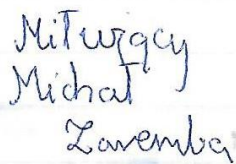 Miłujący
Michał
Zaremba